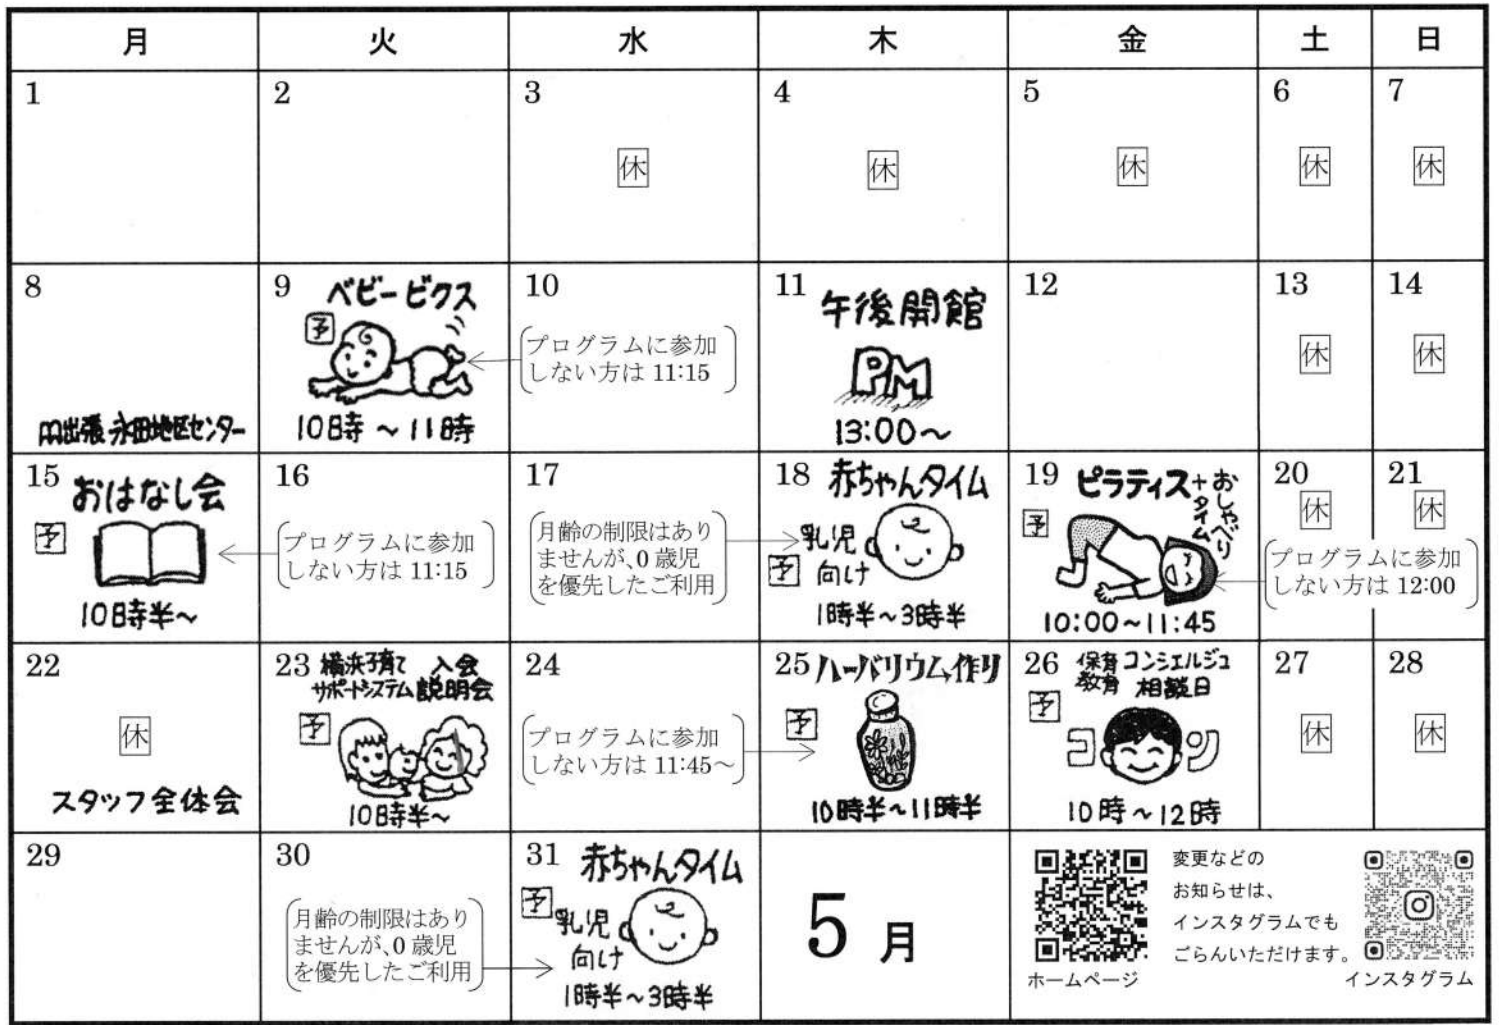 月 火 水 木 金 土 日
1
2
3
休
4
休
5
休
6
休
7
休
8
出張 永田地区センター
9 ベビービクス
予
10時～11時
10
プログラムに参加
しない方は 11:15
11 午後開館
PM
13:00～
12
13
休
14
休
15 おはなし会
予
10時半～
16
プログラムに参加
しない方は 11:15
17
月齢の制限はあり
ませんが、0 歳児
を優先したご利用
18 赤ちゃんタイム
乳児
予 向け
1時半～3時半
19 ピラティス+おしゃべり
タイム
予
10:00～11:45
20
休
21
休
プログラムに参加
しない方は 12:00
22
休
スタッフ全体会
23 横浜子育て 入会
サポートシステム 説明会
予
10時半～
24
プログラムに参加
しない方は 11:45～
25 ハーバリウム作り
予
10時半～11時半
26 保育 コンシェルジュ
教育 相談日
予
コ ン
10時～12時
27
休
28
休
29
30
月齢の制限はあり
ませんが、0 歳児
を優先したご利用
31 赤ちゃんタイム
予
乳児
向け
1時半～3時半
5 月
ホームページ
変更などの
お知らせは、
インスタグラムでも
ごらんいただけます。
インスタグラム